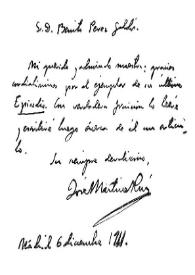 S. D. Benito Perez Galdós.
Mi querido y admirado maestro: gracias
cordialísimas por el ejemplar de su último
Episodio. Con verdadera fruición lo leeré
y escribiré luego acerca de él un artícu-
lo.
Su siempre devotísimo,
José Martínez Ruiz
Madrid 6 diciembre